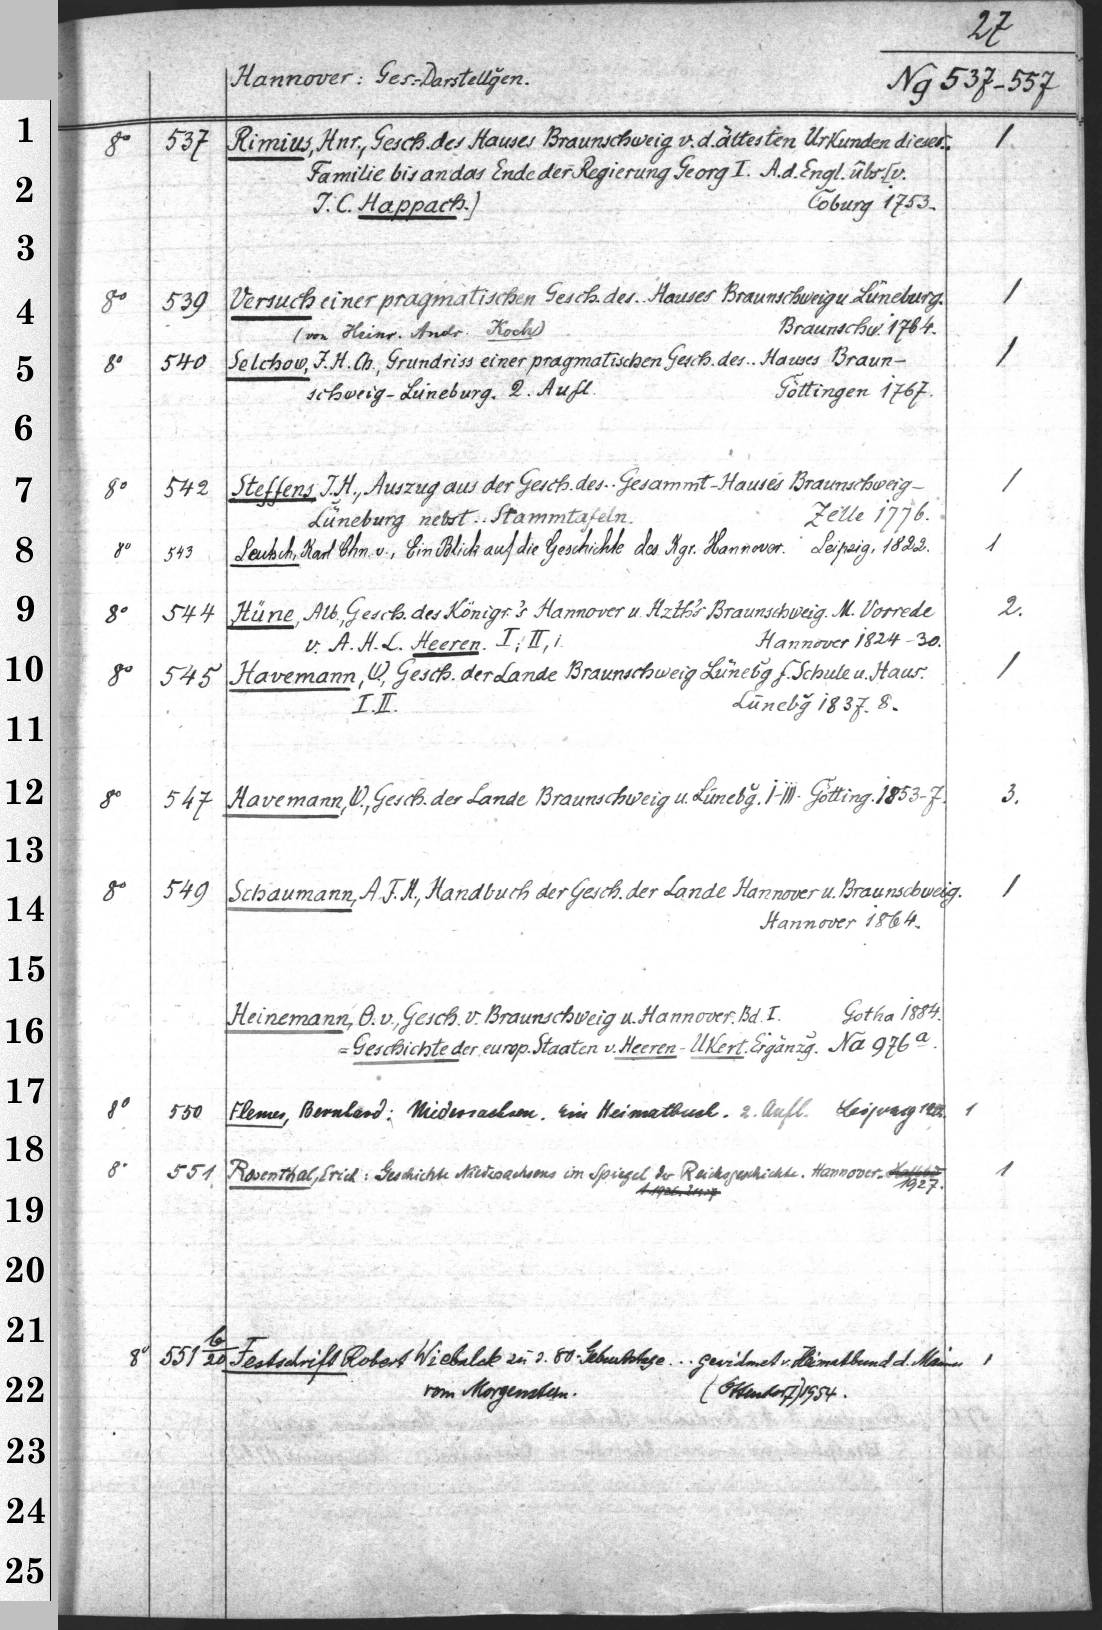 27
Hannover: Ges.-Darstellg̃en.
Ng 537-557
1
8° 537 Rimius, Hnr., Gesch. des Hauses Braunschweig v. d. ältesten Urkunden dieser 1
2
Familie bis an das Ende der Regierung Georg I. A. d. Engl. übs. [v.
J. C. Happach.] Coburg 1753.
3
8° 539 Versuch einer pragmatischen Gesch. des.. Hauses Braunschweig u. Lüneburg. 1
4
(von Heinr. Andr. Koch) Braunschw. 1764.
5
8° 540 Selchow, J. H. Ch., Grundriss einer pragmatischen Gesch. des.. Hauses Braun- 1
schweig-Lüneburg. 2. Aufl. Göttingen 1767.
6
7
8° 542 Steffens, J. H., Auszug aus der Gesch. des.. Gesammt-Hauses Braunschweig- 1
Lüneburg nebst.. Stammtafeln. Zelle 1776.
8
8° 543 Leutsch, Karl Chn. v., Ein Blick auf die Geschichte des Kgr. Hannover. Leipzig, 1822. 1
9
8° 544 Hüne, Alb., Gesch. des Königr.'s Hannover u. Hzth's Braunschweig. M. Vorrede 2.
v. A. H. L. Heeren. I; II, i. Hannover 1824-30.
10
8° 545 Havemann, W., Gesch. der Lande Braunschweig Lünebg̃ f. Schule u. Haus. 1
I. II. Lünebg̃ 1837. 8.
11
12
8° 547 Havemann, W., Gesch. der Lande Braunschweig u. Lünebg̃. I-III. Götting. 1853-7. 3.
13
8° 549 Schaumann, A. F. H., Handbuch der Gesch. der Lande Hannover u. Braunschweig. 1
14
Hannover 1864.
15
Heinemann, O. v., Gesch. v. Braunschweig u. Hannover. Bd. I. Gotha 1884.
16
= Geschichte der europ. Staaten v. Heeren-Ukert. Ergänzg̃. Na 976 a.
17
8° 550 Flemes, Bernhard: Niedersachsen. Ein Heimatbuch. 2. Aufl. Leipzig 1922. 1
18
8° 551 Rosenthal, Erich: Geschichte Niedersachsens im Spiegel der Reichsgeschichte. Hannover. 1
1927.
19
20
21
8° 551 b/20 Festschrift Robert Wiebalck zu s. 80. Geburtstage... gewidmet v. Heimatbund d. Männer 1
22
vom Morgenstern. (Otterndorf) 1954.
23
24
25